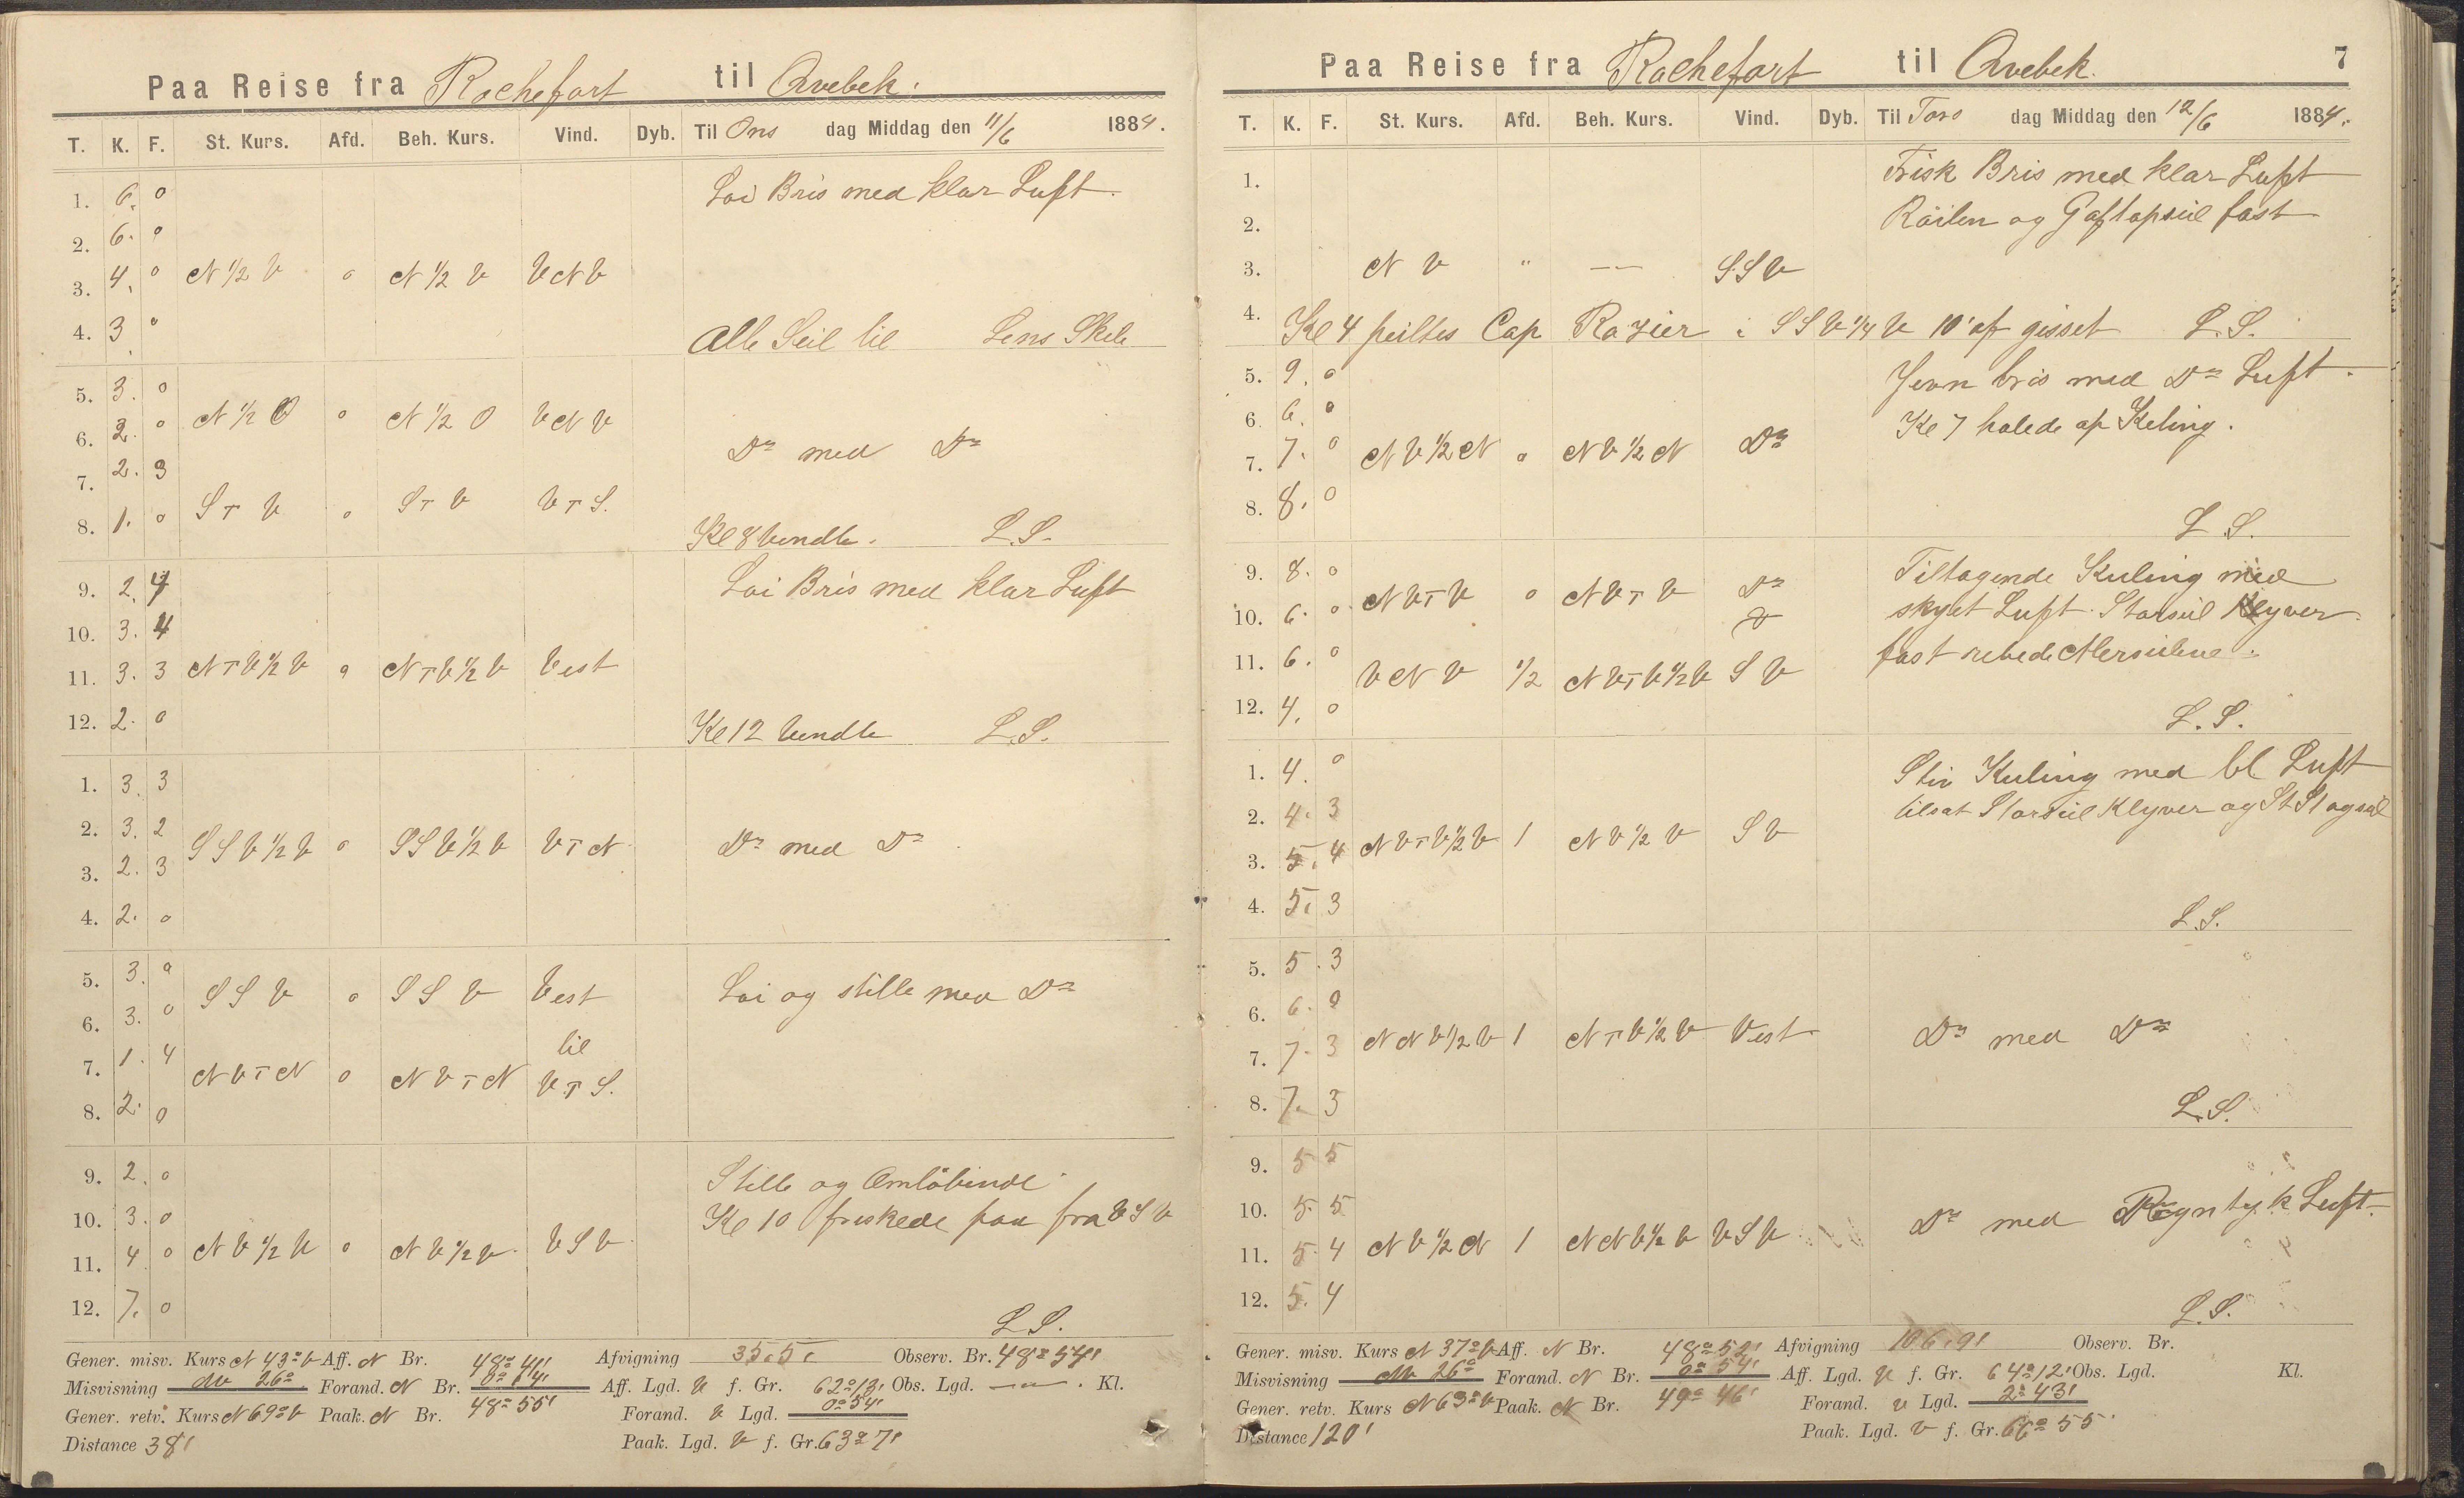 Paa Reise fra Rochefort til Qvebek.
T. K. F. St. Kurs. Afd. Beh. Kurs. Vind. Dyb. Til Ons dag Middag den 11/6 1884.
1. 6. 0 Loi Bris med klar Luft.
2. 6. 0
3. 4. 0 N ½ V 0 N ½ V VNV
4. 3. 0 Alle Seil til Lens Skib
5. 3. 0
6. 2. 0 N ½ O 0 N ½ O VNV
Do med Do
7. 2. 3
8. 1. 0 S T V 0 S T V V T S.
Kl 8 Vendte. L.S.
9. 2. 4 Loi Bris med klar Luft
10. 3. 4
11. 3. 3 N T V ½ V 0 N T V ½ V Vest
12. 2. 0 Kl 12 Vendte L.S.
1. 3. 3
2. 3. 2 SSV ½ V 0 SSV ½ V V T N Do med Do
3. 2. 3
4. 2. 0
5. 3. 0 SSV 0 SSV Vest Loi og stille med Do
6. 3. 0
til
7. 1. 4 NV T N 0 NV T N V T S.
8. 2. 0
9. 2. 0 Stille og Omlöbende
10. 3. 0 Kl 10 friskede paa fra VSV
11. 4 0 NV ½ V 0 NV ½ V VSV
12. 7. 0 L.S.
Gener. misv. Kurs N 43° V Aff. N Br. 48° 41' Afvigning 35,5, Observ. Br. 48° 54'
Misvisning NV 26° Forand. N Br. 0° 14' Aff. Lgd. V f. Gr. 62° 13' Obs. Lgd. — . Kl.
Gener. retv. Kurs N 69° V Paak. N Br. 48° 55' Forand. V Lgd. 0° 54'
Distance 38' Paak. Lgd. V f. Gr. 63° 7'
Paa Reise fra Rochefort til Qvebek. 7
T. K. F. St. Kurs. Afd. Beh. Kurs. Vind. Dyb. Til Tors dag Middag den 12/6 1884.
1. Frisk Bris med klar Luft
2. Röilen og Gaftopseil fast
3. N V " — SSV
4. Kl 4 peiltes Cap Rozier i SSV ¼ V 10' af gisset L.S.
5. 9. 0 Jevn bris med Do Luft.
6. 6. 0 Kl 7 halede af Keling.
7. 7. 0 NV ½ N 0 NV ½ N Do
8. 8. 0 L.S.
9. 8. 0 Tiltagende Kuling med
10. 6. 0 NV T V 0 NV T V Do skyet Luft. Storseil Klyver
11. 6. 0 fast rebede Merseilene.
VNV ½ NV T V ½ V SV
12. 4. 0 L.S.
1. 4. 0 Stiv Kuling med bl Luft
2. 4. 3 tilsat Storseil Klyver og St Stagseil
3. 5. 4 NV T V ½ V 1 NV ½ V SV
4. 5. 3 L.S.
5. 5. 3
6. 6. 0
7. 7. 3 NNV ½ V 1 N T V ½ V Vest Do med Do
8. 7. 3 L.S.
9. 5 5
10. 5. 5 Do med Regntyk Luft.
11. 5. 4 NV ½ N 1 NNV ½ V VSV
12. 5. 4 L.S.
Gener. misv. Kurs N 37° V Aff. N Br. 48° 52' Afvigning 106,9' Observ. Br.
Misvisning NV 26° Forand. N Br. 0° 54' Aff. Lgd. V f. Gr. 64° 12' Obs. Lgd. Kl.
Gener. retv. Kurs N 63° V Paak. N Br. 49° 46' Forand. V Lgd. 2° 43'
Distance 120' Paak. Lgd. V f. Gr. 66° 55'